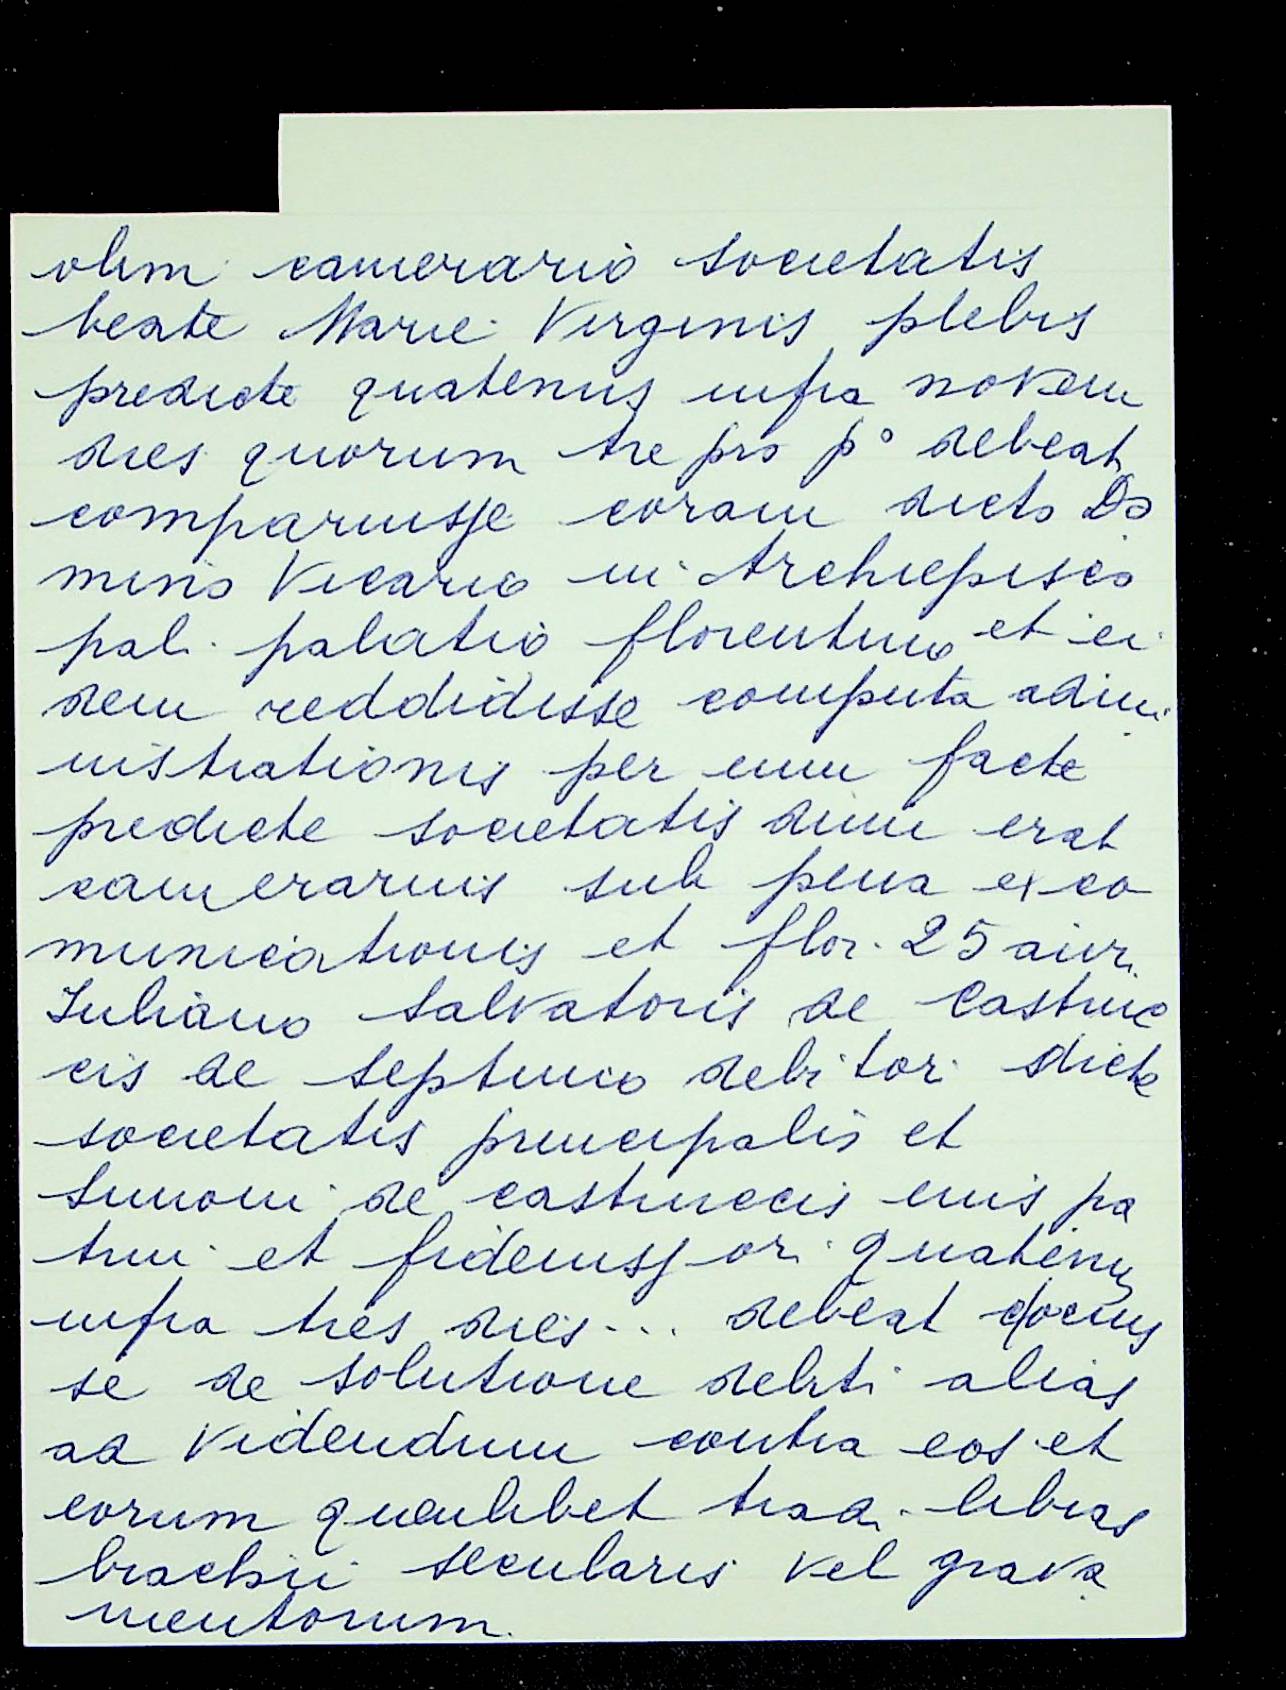 olim camerario societatis
beate Marie Virginis plebis
predicte quatenus infra novem
dies quorum tre pro p° debeat
comparuisse coram dicto Do
mino Vicario in Archiepisco
pali palatio florentino et ei
dem reddidisse computa admi
nistrationis per eum facte
predicte societatis dum erat
camerarius sub pena exco
municationis et flor. 25 aur.
Iuliano Salvatoris de Castruc
cis de Septimo debitori dicte
societatis principalis et
Simoni de Castruccis eius pa
trui et fideiussori quatenus
infra tres dies... debeat docuis
se de solutione debiti alias
ad videndum contra eos et
eorum quemlibet trad. libras
brachii secularis vel grava
mentorum.